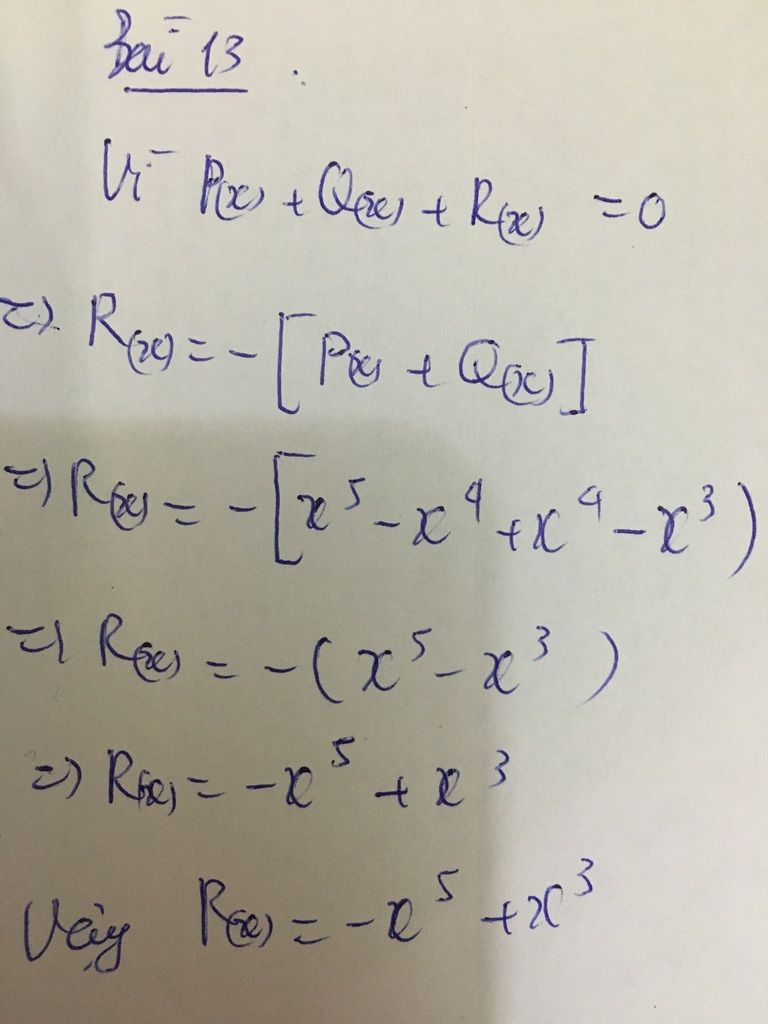 Bài 13.
Vì P(x) + Q(x) + R(x) = 0
=> R(x) = - [P(x) + Q(x)]
=> R(x) = - [x⁵ - x⁴ + x⁴ - x³)
=> R(x) = - (x⁵ - x³)
=> R(x) = - x⁵ + x³
Vậy R(x) = - x⁵ + x³